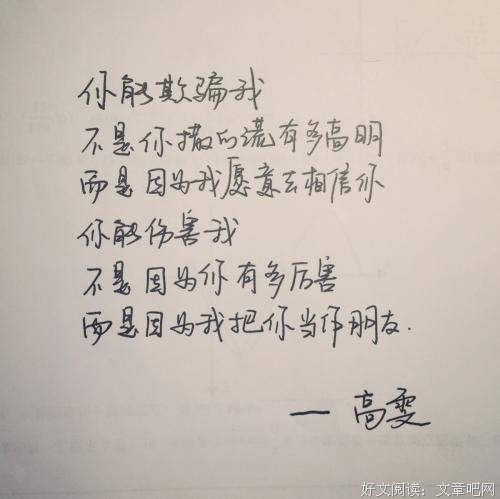 你能欺骗我
不是你撒的谎有多高明
而是因为我愿意去相信你
你能伤害我
不是因为你有多厉害
而是因为我把你当作朋友.
— 高雯
好文阅读：文章吧网